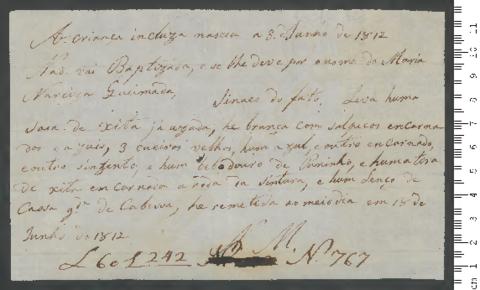 A criança incluza nasceu a 8 de Junho de 1812
Naõ vai Baptezada, e se lhe deve por o nome de Maria
Narciza Guimada, Sinaes do fato, Leva huma
saia de xita já uzada, he branca com salpicos encarna
dos e azuis, 3 cueiros velhos, hum azul, e outro encarnado,
e outro sintento, e hum de Paninho, e huma tira
de xita encarnada a roda da sintura, e hum lenço de
Cassa pª de Cabessa, he remetida ao meio dia em 18 de
Junho de 1812
A M.
L 60 f 242 Nº 767
cm 1 2 3 4 5 6 7 8 9 10 11